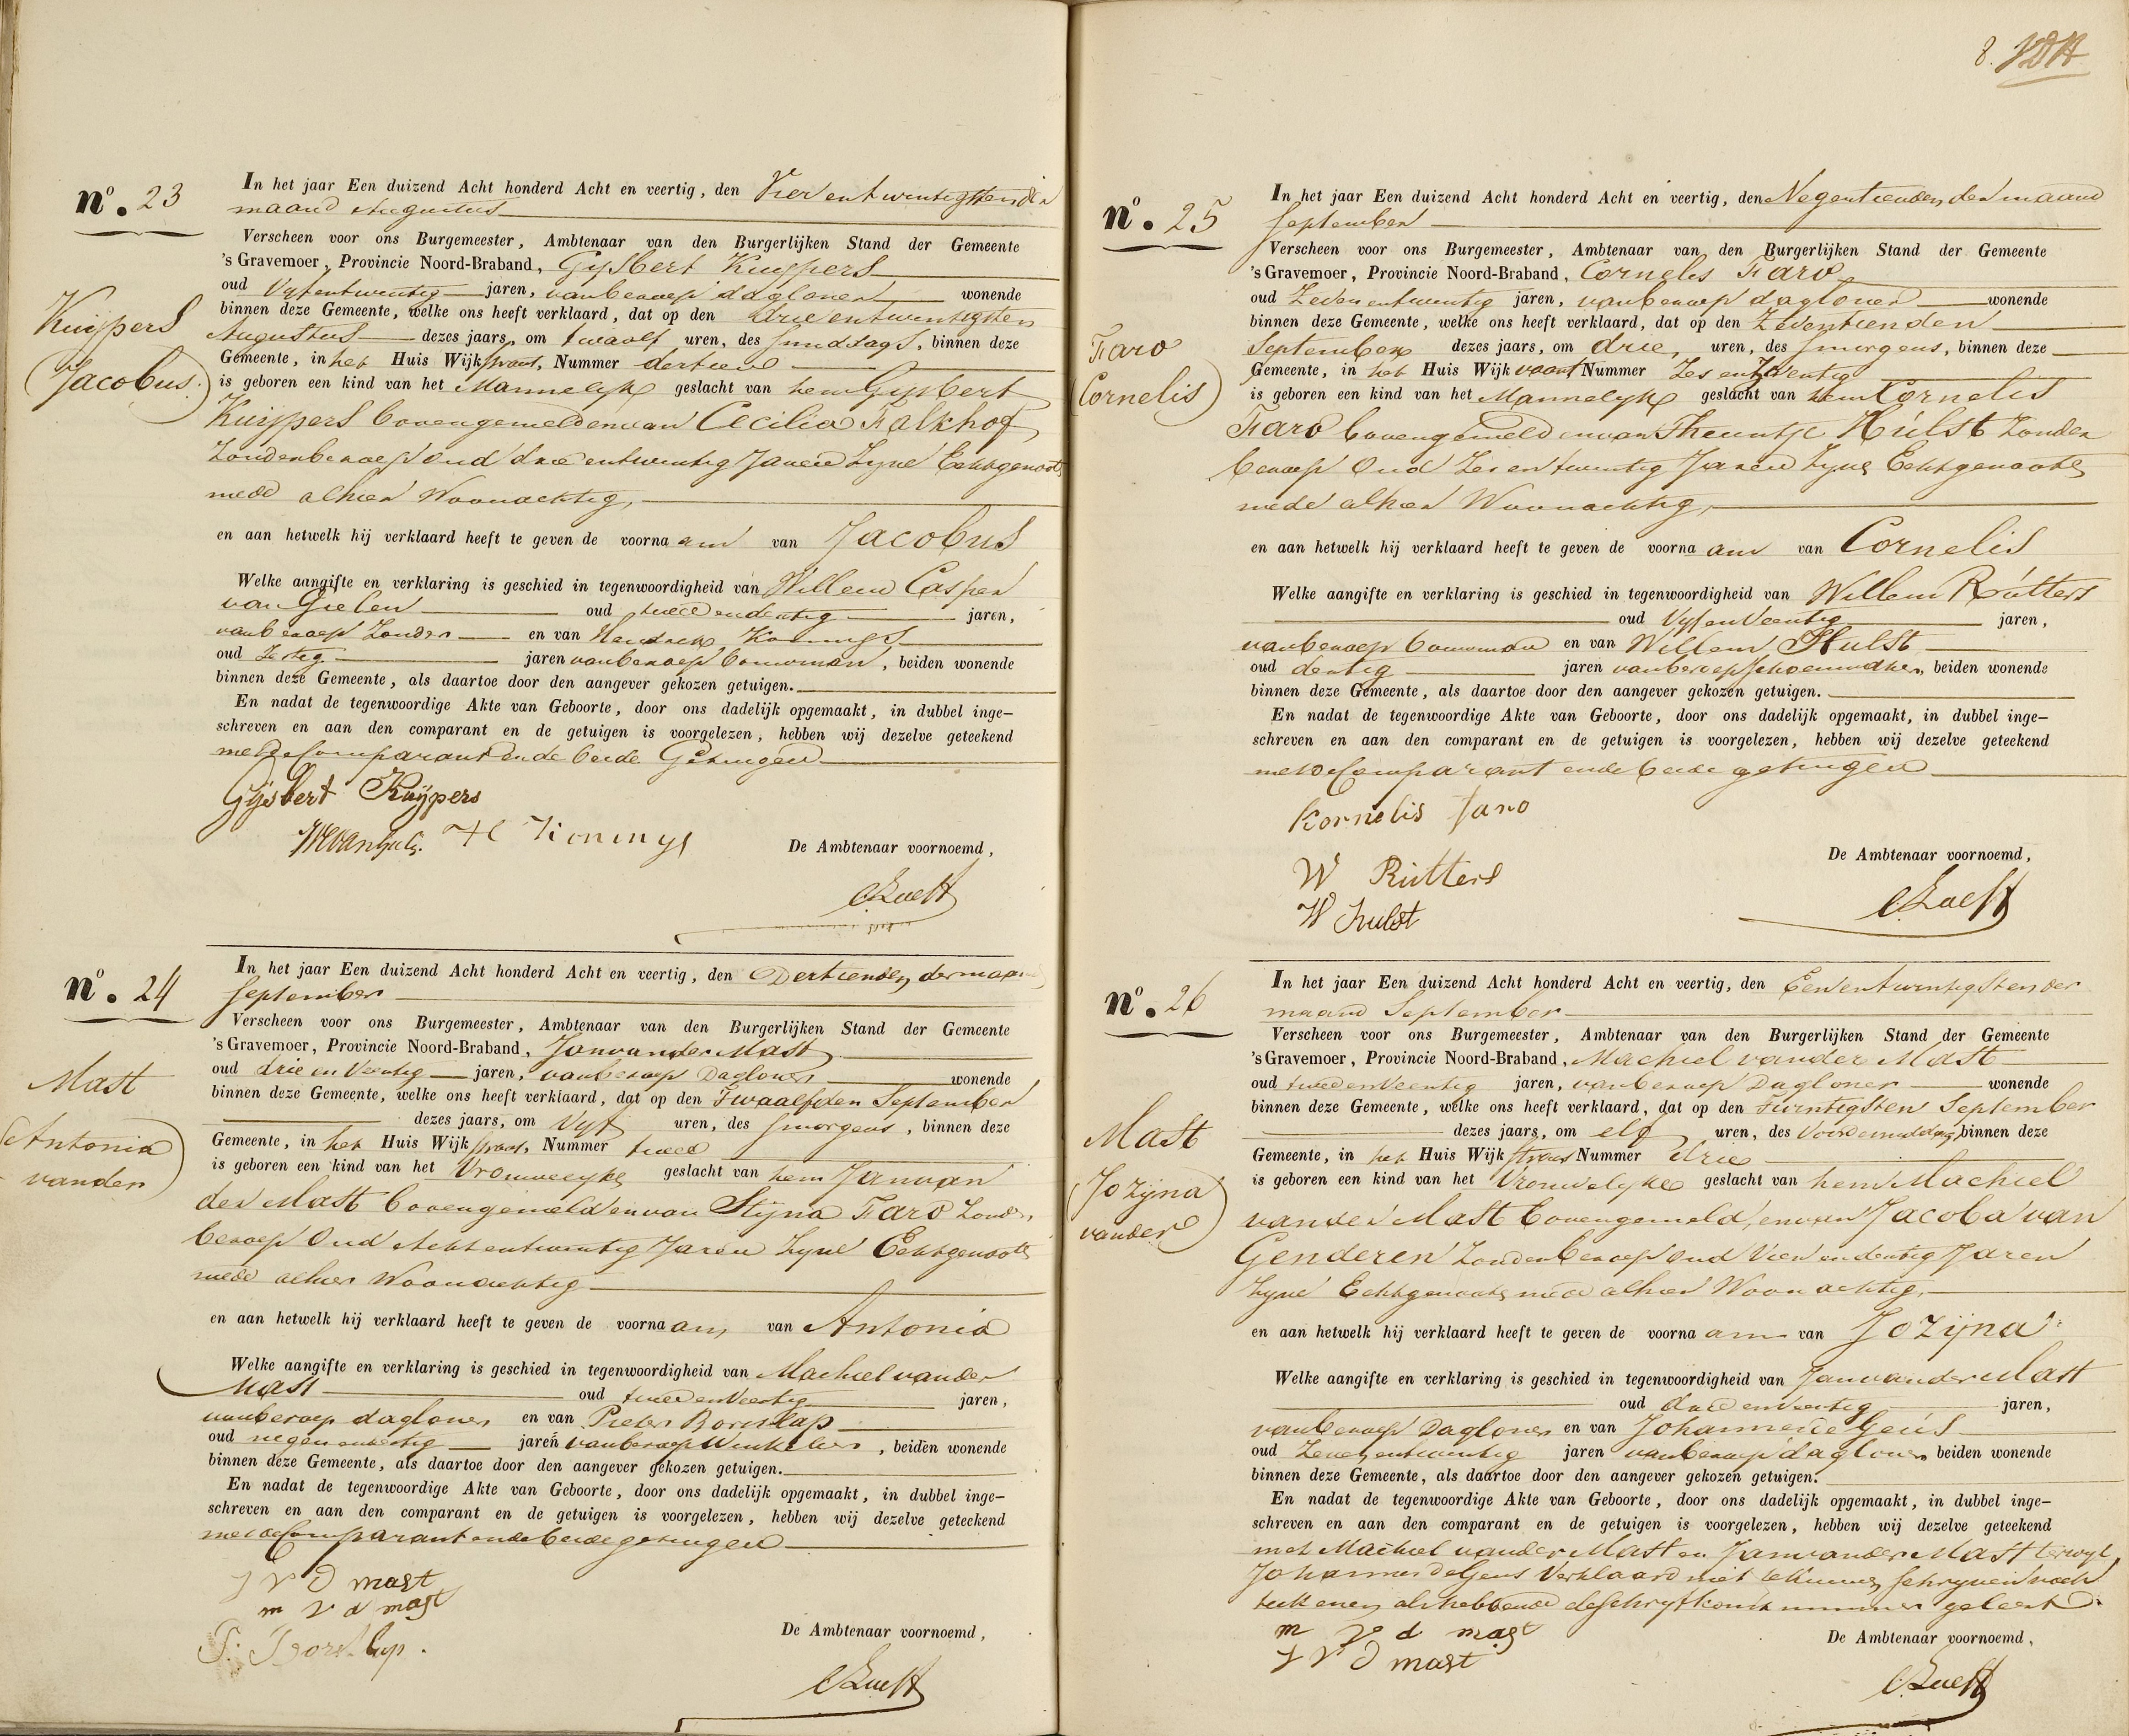 nº. 23
In het jaar Een duizend Acht honderd Acht en veertig, den Vier entwintigsten der
maand Augustus
Verscheen voor ons Burgemeester, Ambtenaar van den Burgerlijken Stand der Gemeente
's Gravemoer, Provincie Noord-Braband, Gysbert Kuypers
oud Vyf entwintig jaren, van beroep dagloner wonende
binnen deze Gemeente, welke ons heeft verklaard, dat op den drie entwintigsten
Augustus dezes jaars, om twaalf uren, des smiddags, binnen deze
Gemeente, in het Huis Wijk straat, Nummer dertien
is geboren een kind van het Mannelyk geslacht van hem Gysbert
Kuijpers bovengemeld en van Cecilia Falkhof
Zonder beroep oud drie entwintig Jaren Zyne Echtgenoote
mede alhier Woonachtig,
en aan hetwelk hij verklaard heeft te geven de voorna am van Jacobus
Welke aangifte en verklaring is geschied in tegenwoordigheid van Willem Casper
van Gielen oud twee en dertig jaren,
van beroep Zonder en van Hendrik Konings
oud Zestig jaren van beroep bouwman, beiden wonende
binnen deze Gemeente, als daartoe door den aangever gekozen getuigen.
En nadat de tegenwoordige Akte van Geboorte, door ons dadelijk opgemaakt, in dubbel inge-
schreven en aan den comparant en de getuigen is voorgelezen, hebben wij dezelve geteekend
met de Comparant en de beide Getuigen
Kuijpers
(Jacobus.)
Gijsbert Kuijpers
H Konings
De Ambtenaar voornoemd,
nº. 24
In het jaar Een duizend Acht honderd Acht en veertig, den Dertienden der maand
September
Verscheen voor ons Burgemeester, Ambtenaar van den Burgerlijken Stand der Gemeente
's Gravemoer, Provincie Noord-Braband, Jan van der Mast
oud drie en Veertig jaren, van beroep Dagloner wonende
binnen deze Gemeente, welke ons heeft verklaard, dat op den Twaalfden September
dezes jaars, om Vyf uren, des smorgens, binnen deze
Gemeente, in het Huis Wijk straat, Nummer twee
is geboren een kind van het Vrouwelyke geslacht van hem Jan van
der Mast bovengemeld en van Stijna Faro Zonder
beroep Oud Acht entwintig Jaren Zyne Echtgenoote
mede alhier Woonachtig
en aan hetwelk hij verklaard heeft te geven de voorna am van Antonia
Welke aangifte en verklaring is geschied in tegenwoordigheid van Machiel van der
Mast oud twee en Veertig jaren,
van beroep dagloner en van Pieter Borstlap
oud negen en jaren van beroep Winkelier, beiden wonende
binnen deze Gemeente, als daartoe door den aangever gekozen getuigen.
En nadat de tegenwoordige Akte van Geboorte, door ons dadelijk opgemaakt, in dubbel inge-
schreven en aan den comparant en de getuigen is voorgelezen, hebben wij dezelve geteekend
met de Comparant en de beide getuigen
Mast
(Antonia
van der)
J V D mast
m v d mast
P. Borstlap.
De Ambtenaar voornoemd,
8.
nº. 25
In het jaar Een duizend Acht honderd Acht en veertig, den Negentienden der maand
September
Verscheen voor ons Burgemeester, Ambtenaar van den Burgerlijken Stand der Gemeente
's Gravemoer, Provincie Noord-Braband, Cornelis Faro
oud Zeven entwintig jaren, van beroep dagloner wonende
binnen deze Gemeente, welke ons heeft verklaard, dat op den Zeventienden
September dezes jaars, om drie, uren, des smorgens, binnen deze
Gemeente, in het Huis Wijk vaart Nummer Zes en Twentig
is geboren een kind van het Mannelyk geslacht van hem Cornelis
Faro bovengemeld en van Theuntje Hulst Zonder
beroep Oud Zes en twintig Jaren Zyne Echtgenoote
mede alhier Woonachtig,
en aan hetwelk hij verklaard heeft te geven de voorna am van Cornelis
Welke aangifte en verklaring is geschied in tegenwoordigheid van Willem Rutters
oud Vyf en Veertig jaren,
van beroep bouwman en van Willem Hulst
oud dertig jaren van beroep schoenmaker, beiden wonende
binnen deze Gemeente, als daartoe door den aangever gekozen getuigen.
En nadat de tegenwoordige Akte van Geboorte, door ons dadelijk opgemaakt, in dubbel inge-
schreven en aan den comparant en de getuigen is voorgelezen, hebben wij dezelve geteekend
met de Comparant en de beide getuigen
Faro
(Cornelis)
Kornelis faro
W Rutters
W hulst
De Ambtenaar voornoemd,
nº. 26
In het jaar Een duizend Acht honderd Acht en veertig, den Een entwintigsten der
maand September
Verscheen voor ons Burgemeester, Ambtenaar van den Burgerlijken Stand der Gemeente
's Gravemoer, Provincie Noord-Braband, Machiel van der Mast
oud twee en Veertig jaren, van beroep Dagloner wonende
binnen deze Gemeente, welke ons heeft verklaard, dat op den Twintigsten September
dezes jaars, om elf uren, des Voordemiddag, binnen deze
Gemeente, in het Huis Wijk straat Nummer drie
is geboren een kind van het Vrouwelyke geslacht van hem Machiel
van der Mast bovengemeld, en van Jacoba van
Genderen Zonder beroep oud Vier en dertig Jaren
Zyne Echtgenoote mede alhier Woonachtig,
en aan hetwelk hij verklaard heeft te geven de voorna am van Jozijna
Welke aangifte en verklaring is geschied in tegenwoordigheid van Jan van der Mast
oud drie en Veertig jaren,
van beroep Dagloner en van Johannes de Geus
oud Zeven entwintig jaren van beroep dagloner beiden wonende
binnen deze Gemeente, als daartoe door den aangever gekozen getuigen.
En nadat de tegenwoordige Akte van Geboorte, door ons dadelijk opgemaakt, in dubbel inge-
schreven en aan den comparant en de getuigen is voorgelezen, hebben wij dezelve geteekend
met Machiel van der Mast en Jan van der Mast terwyl,
Johannes de Geus Verklaard niet te kunnen schryven noch
teekenen als hebbende de schryfkonst nimmer geleerd.
Mast
(Jozijna
van der)
m v d mast
J V D mast
De Ambtenaar voornoemd,